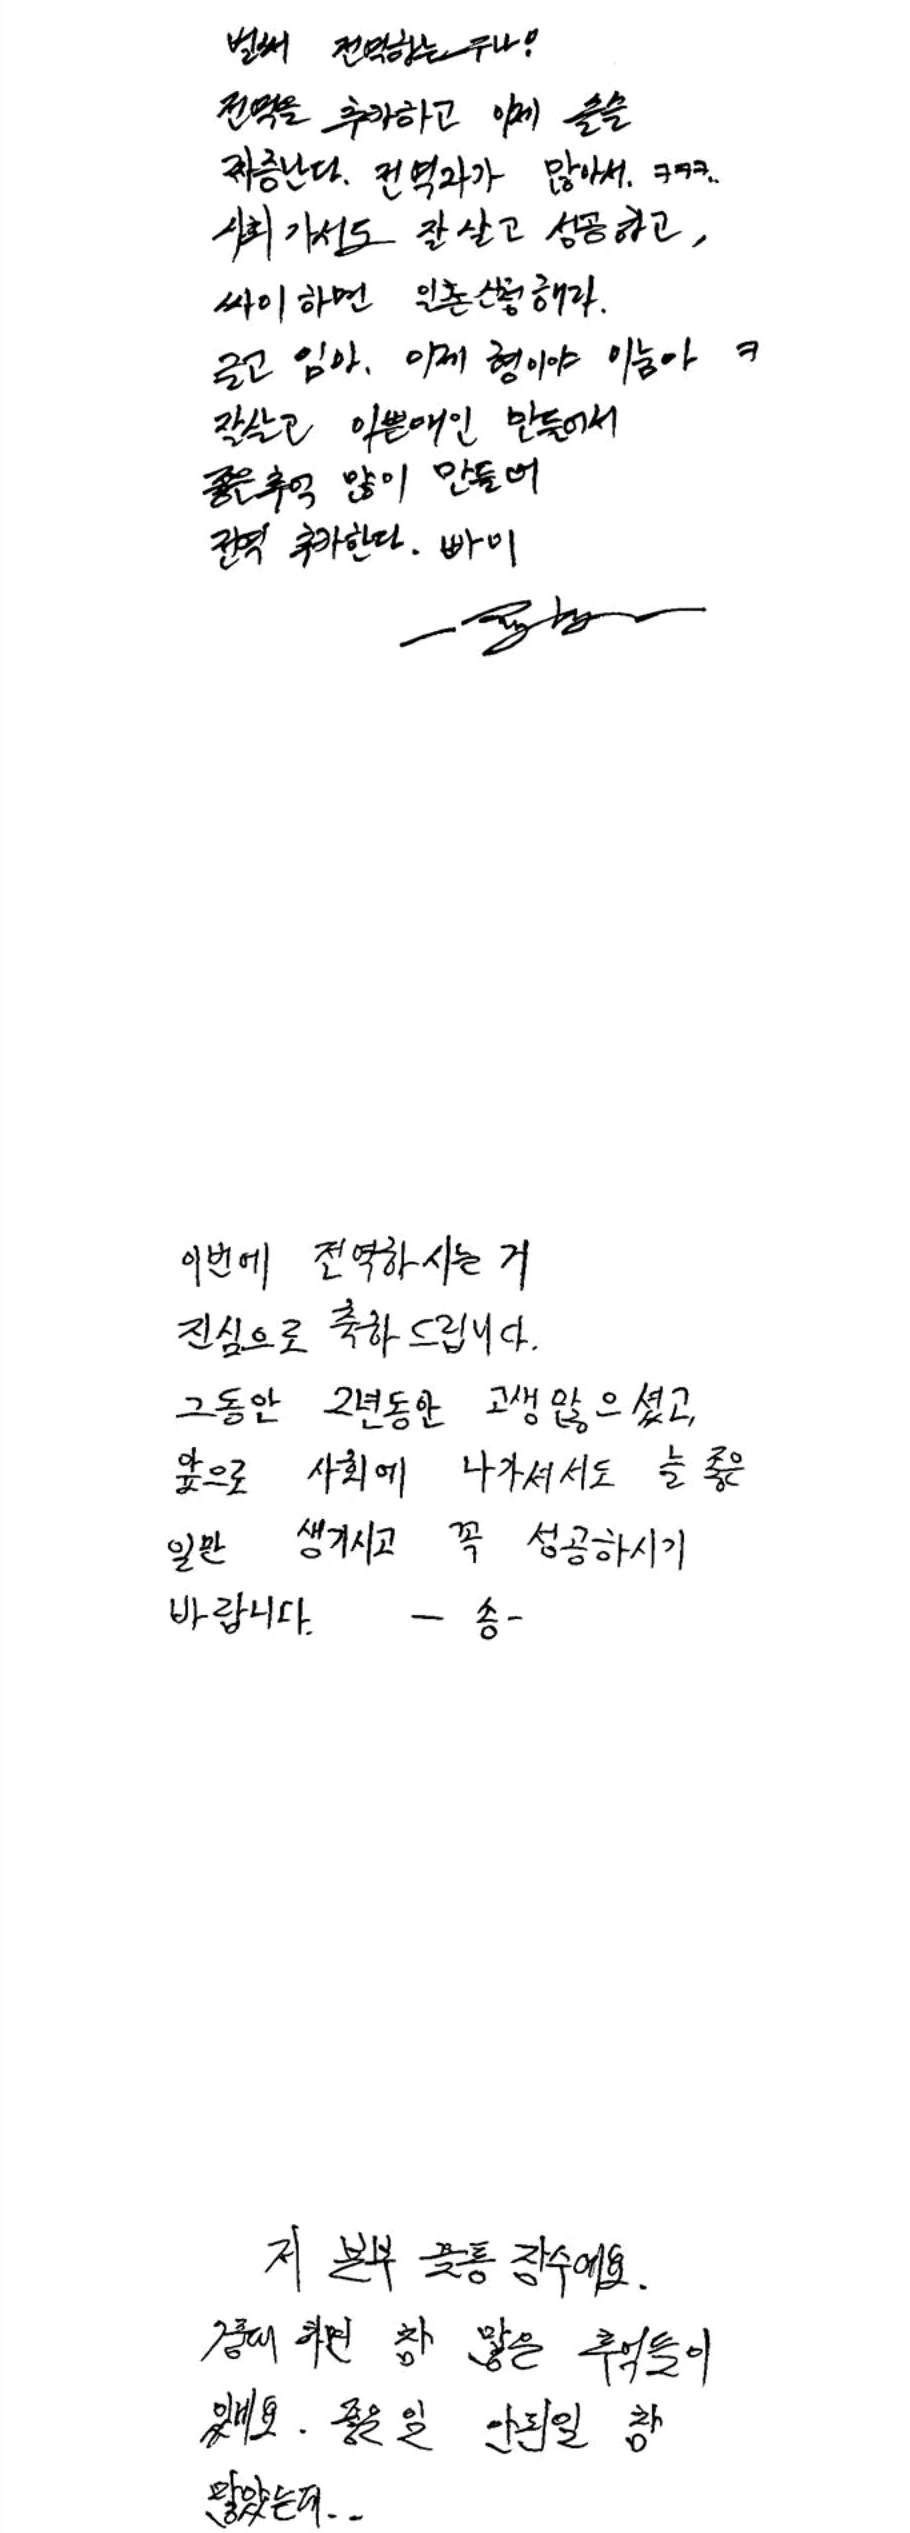 벌써 전역하는구나!
전역을 추카하고 이제 슬슬
짜증난다. 전역자가 많아서. ㅋㅋㅋ..
사회 가서도 잘 살고 성공하고,
싸이 하면 일촌신청해라.
글고 임마. 이제 형이야 이놈아 ㅋ
잘살고 이쁜애인 만들어서
좋은추억 많이 만들어
전역 추카한다. 빠이
이번에 전역하시는 거
진심으로 축하 드립니다.
그동안 2년동안 고생많으셨고,
앞으로 사회에 나가셔서도 늘 좋은
일만 생기시고 꼭 성공하시기
바랍니다. - 송-
저 본부 꼴통 장수에요.
2중대 하면 참 많은 추억들이
있네요. 좋은일 안된일 참
많았는데..